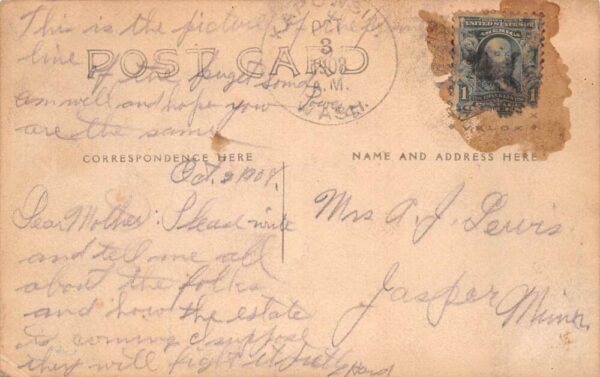 This is the picture of the
line
of the puget sound
am well and hope you
are the same
POST CARD
OCT
3
1908
A.M.
WASH.
UNITED STATES OF AMERICA
1
VELOX
CORRESPONDENCE HERE
NAME AND ADDRESS HERE
Oct. 2 1908.
Dear Mother: Please write
and tell me all
about the folks
and how the estate
is coming I suppose
they will fight it pretty
Hard
Mrs A. J. Lewis
Jasper
Minn.